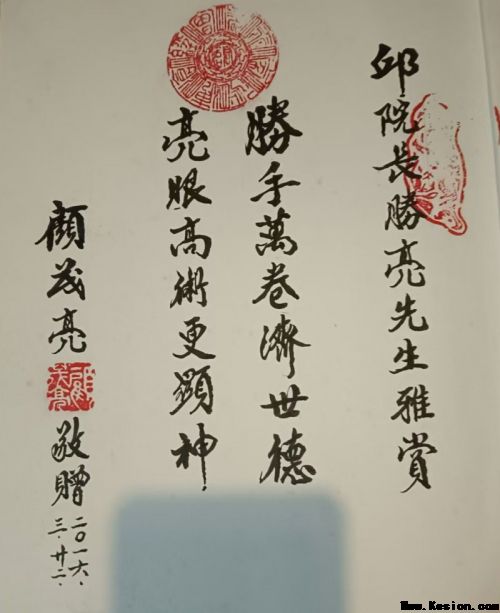 邱院長勝亮先生雅賞
勝手萬卷濟世德
亮眼高術更顯神
顧茂亮
敬贈
二〇一六.
三.廿二.
Www.Kesion.com